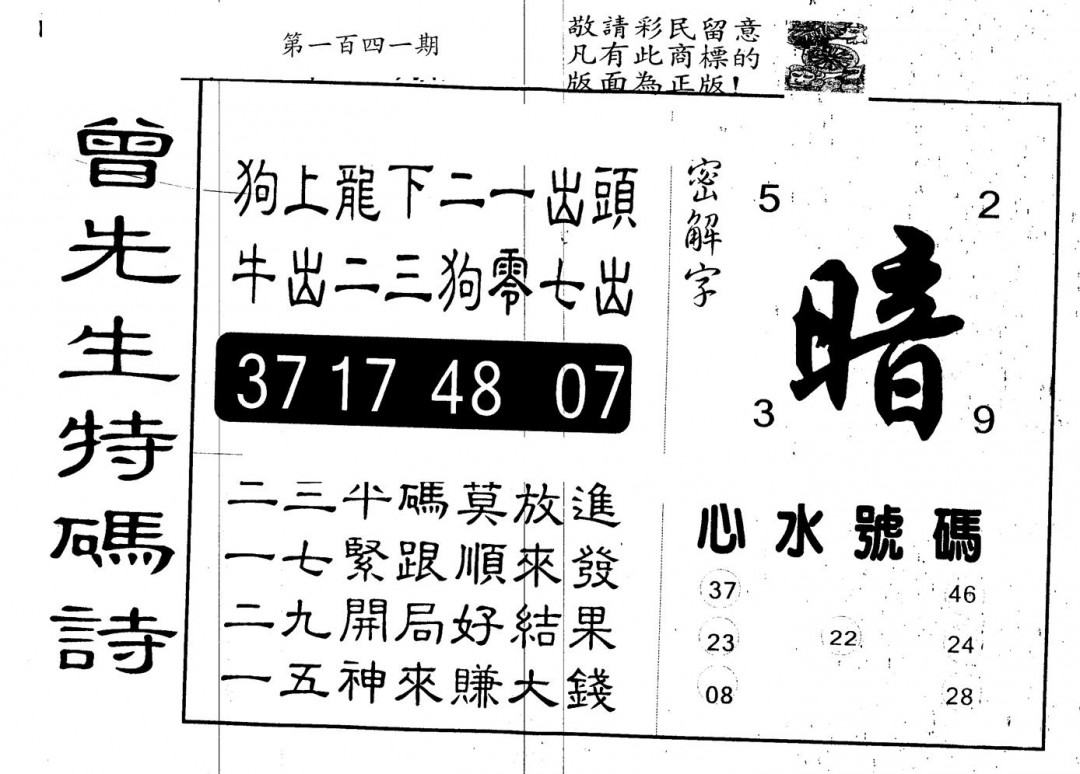 第一百四一期
敬請彩民留意
凡有此商標的
版面為正版!
曾先生特碼詩
狗上龍下二一出頭
牛出二三狗零七出
37 17 48 07
二三半碼莫放進
一七緊跟順來發
二九開局好結果
一五神來賺大錢
密解字
5 2
暗
3 9
心水號碼
37 46
23 22 24
08 28